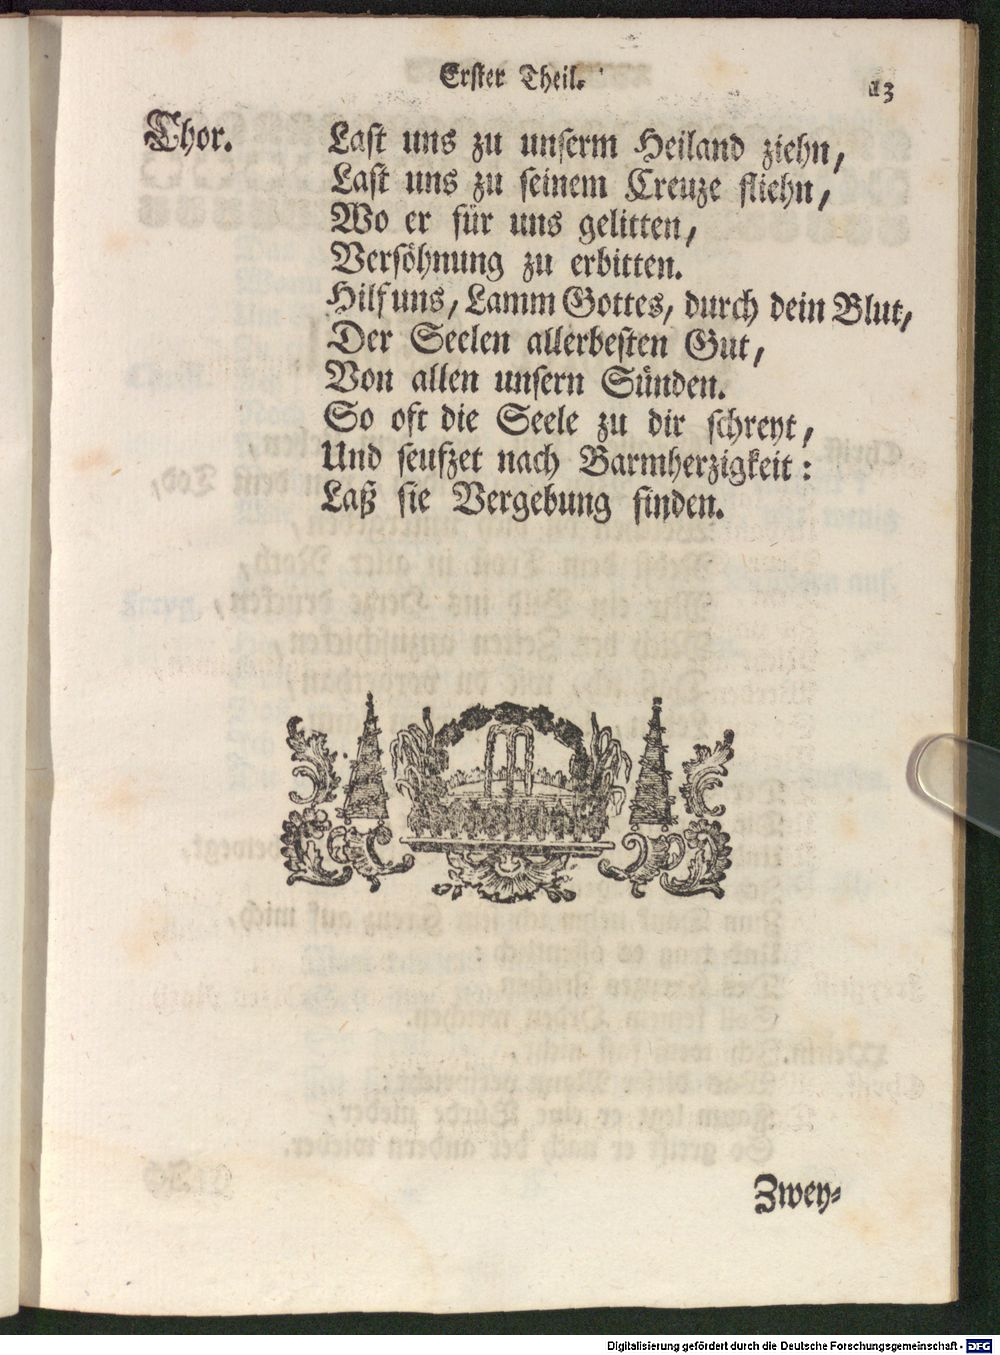 Erster Theil.
13
Chor.
Laſt uns zu unſerm Heiland ziehn,
Laſt uns zu ſeinem Creuze fliehn,
Wo er für uns gelitten,
Verſöhnung zu erbitten.
Hilf uns, Lamm Gottes, durch dein Blut,
Der Seelen allerbeſten Gut,
Von allen unſern Sünden.
So oft die Seele zu dir ſchreyt,
Und ſeufzet nach Barmherzigkeit:
Laß ſie Vergebung finden.
Zwey-
Digitalisierung gefördert durch die Deutsche Forschungsgemeinschaft - DFG